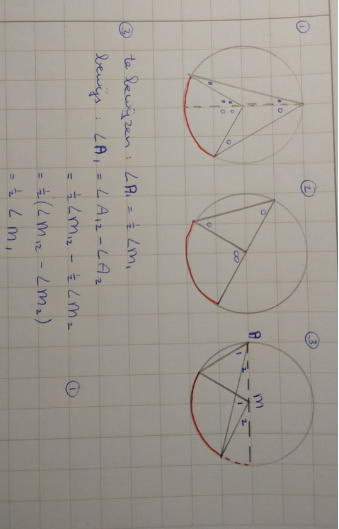 ①
②
③
A
1
2
M
1
2
③ te bewijzen: ∠A₁ = ½ ∠M₁
bewijs: ∠A₁ = ∠A₁₂ - ∠A₂
= ½ ∠M₁₂ - ½ ∠M₂ ①
= ½ (∠M₁₂ - ∠M₂)
= ½ ∠M₁